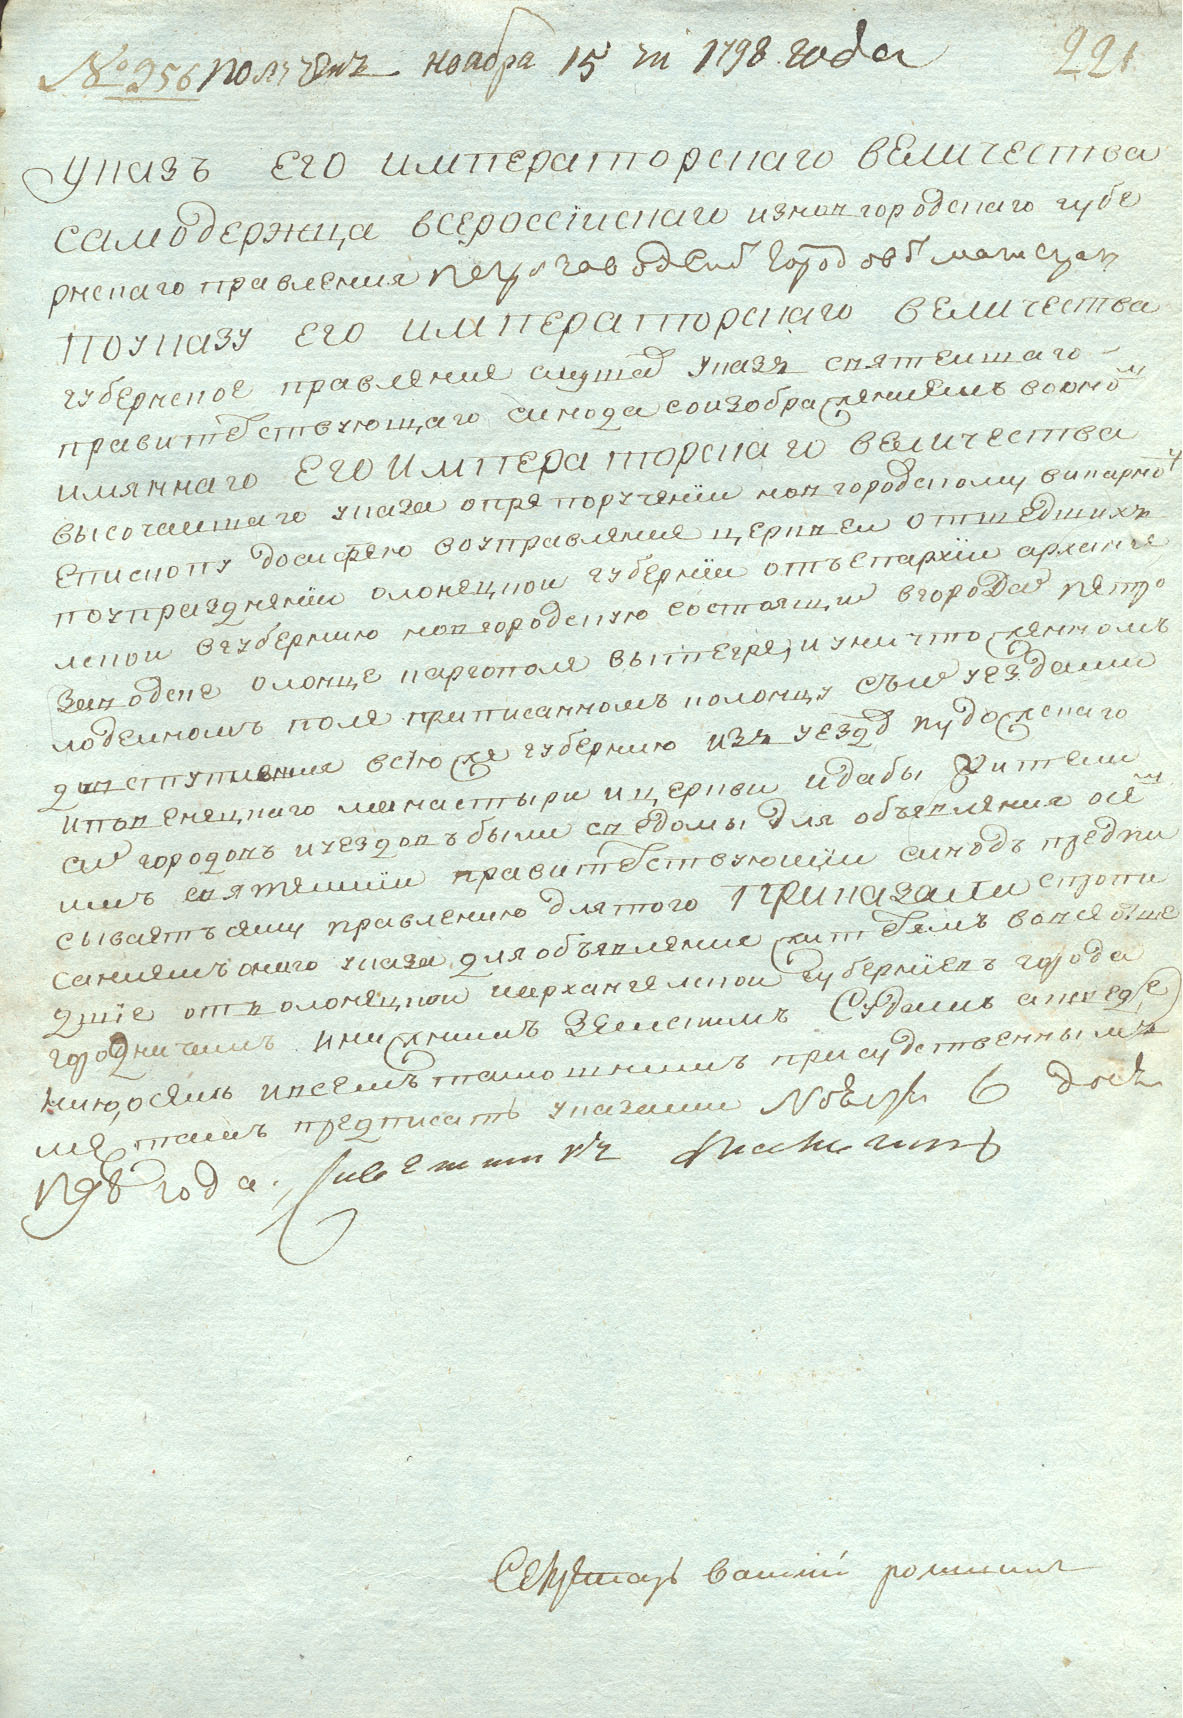 № 256 получен ноября 15 чи 1798 года 221
указъ его императорскаго величества
самодержца всероссїискаго изновгородскаго губе
рнскаго правления петрозаводской городовой магистрат
поуказу его императорскаго величества
губернское правление слушав указъ святеишаго
правительствующаго синода соизображениемъ воономъ
имяннаго его императорскаго величества
высочаишаго указа опре поручении новгородскому викарному
епископу воуправление церквеи отшедшихъ
поупразднении олонецкои губернїи отъепархїи арханге
лскои вгубернию новгородскую состоящи вгородах петро
заводске олонце каргополе вытегре, и уничтоженномъ
лодеиномъ поле приписанномъ колонцу съи уездами
двступления всїю же губернию изъ уезда пудожскаго
иповенецкаго манастыри ицеркви идабы жители
сих городовъ иуездовъ были сведомы для объявления осем
имъ святеишїи правительствующїи синодъ предпи
сываетъ сему правлению длятого приказали спропи
саниемъ онаго указа для объявления жителямъ вовсе отше
дшїе отъ олонецкои иархангелскои губернїевъ города
городничимъ инижнимъ земскимъ судамъ а
нию, осемъ ивсемъ тамошнимъ присудственнымъ
ме, тамъ предписать указами Ноября 6 дня
1798 года. Советникъ
Секретарь василий